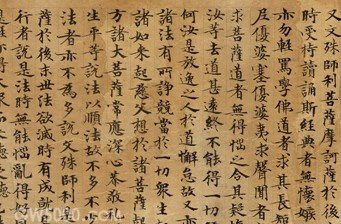 又文殊師利菩薩摩訶薩於後
時受持讀誦斯經典者無懷嫉
亦勿輕罵學佛道者求其長短
尼優婆塞優婆夷求聲聞
求菩薩道者無得惱之令其疑
汝等去道甚遠終不能得一切
何汝是放逸之人於道懈怠故又
諸法有所諍競當於一切衆生
諸如來起慈父想於諸菩薩起
方諸大菩薩常應深心恭敬
生平等説法以順法故不多不
法者亦不為多説文殊師利
薩於後末世法欲滅時有成就
行者説是法時無能惱亂得好